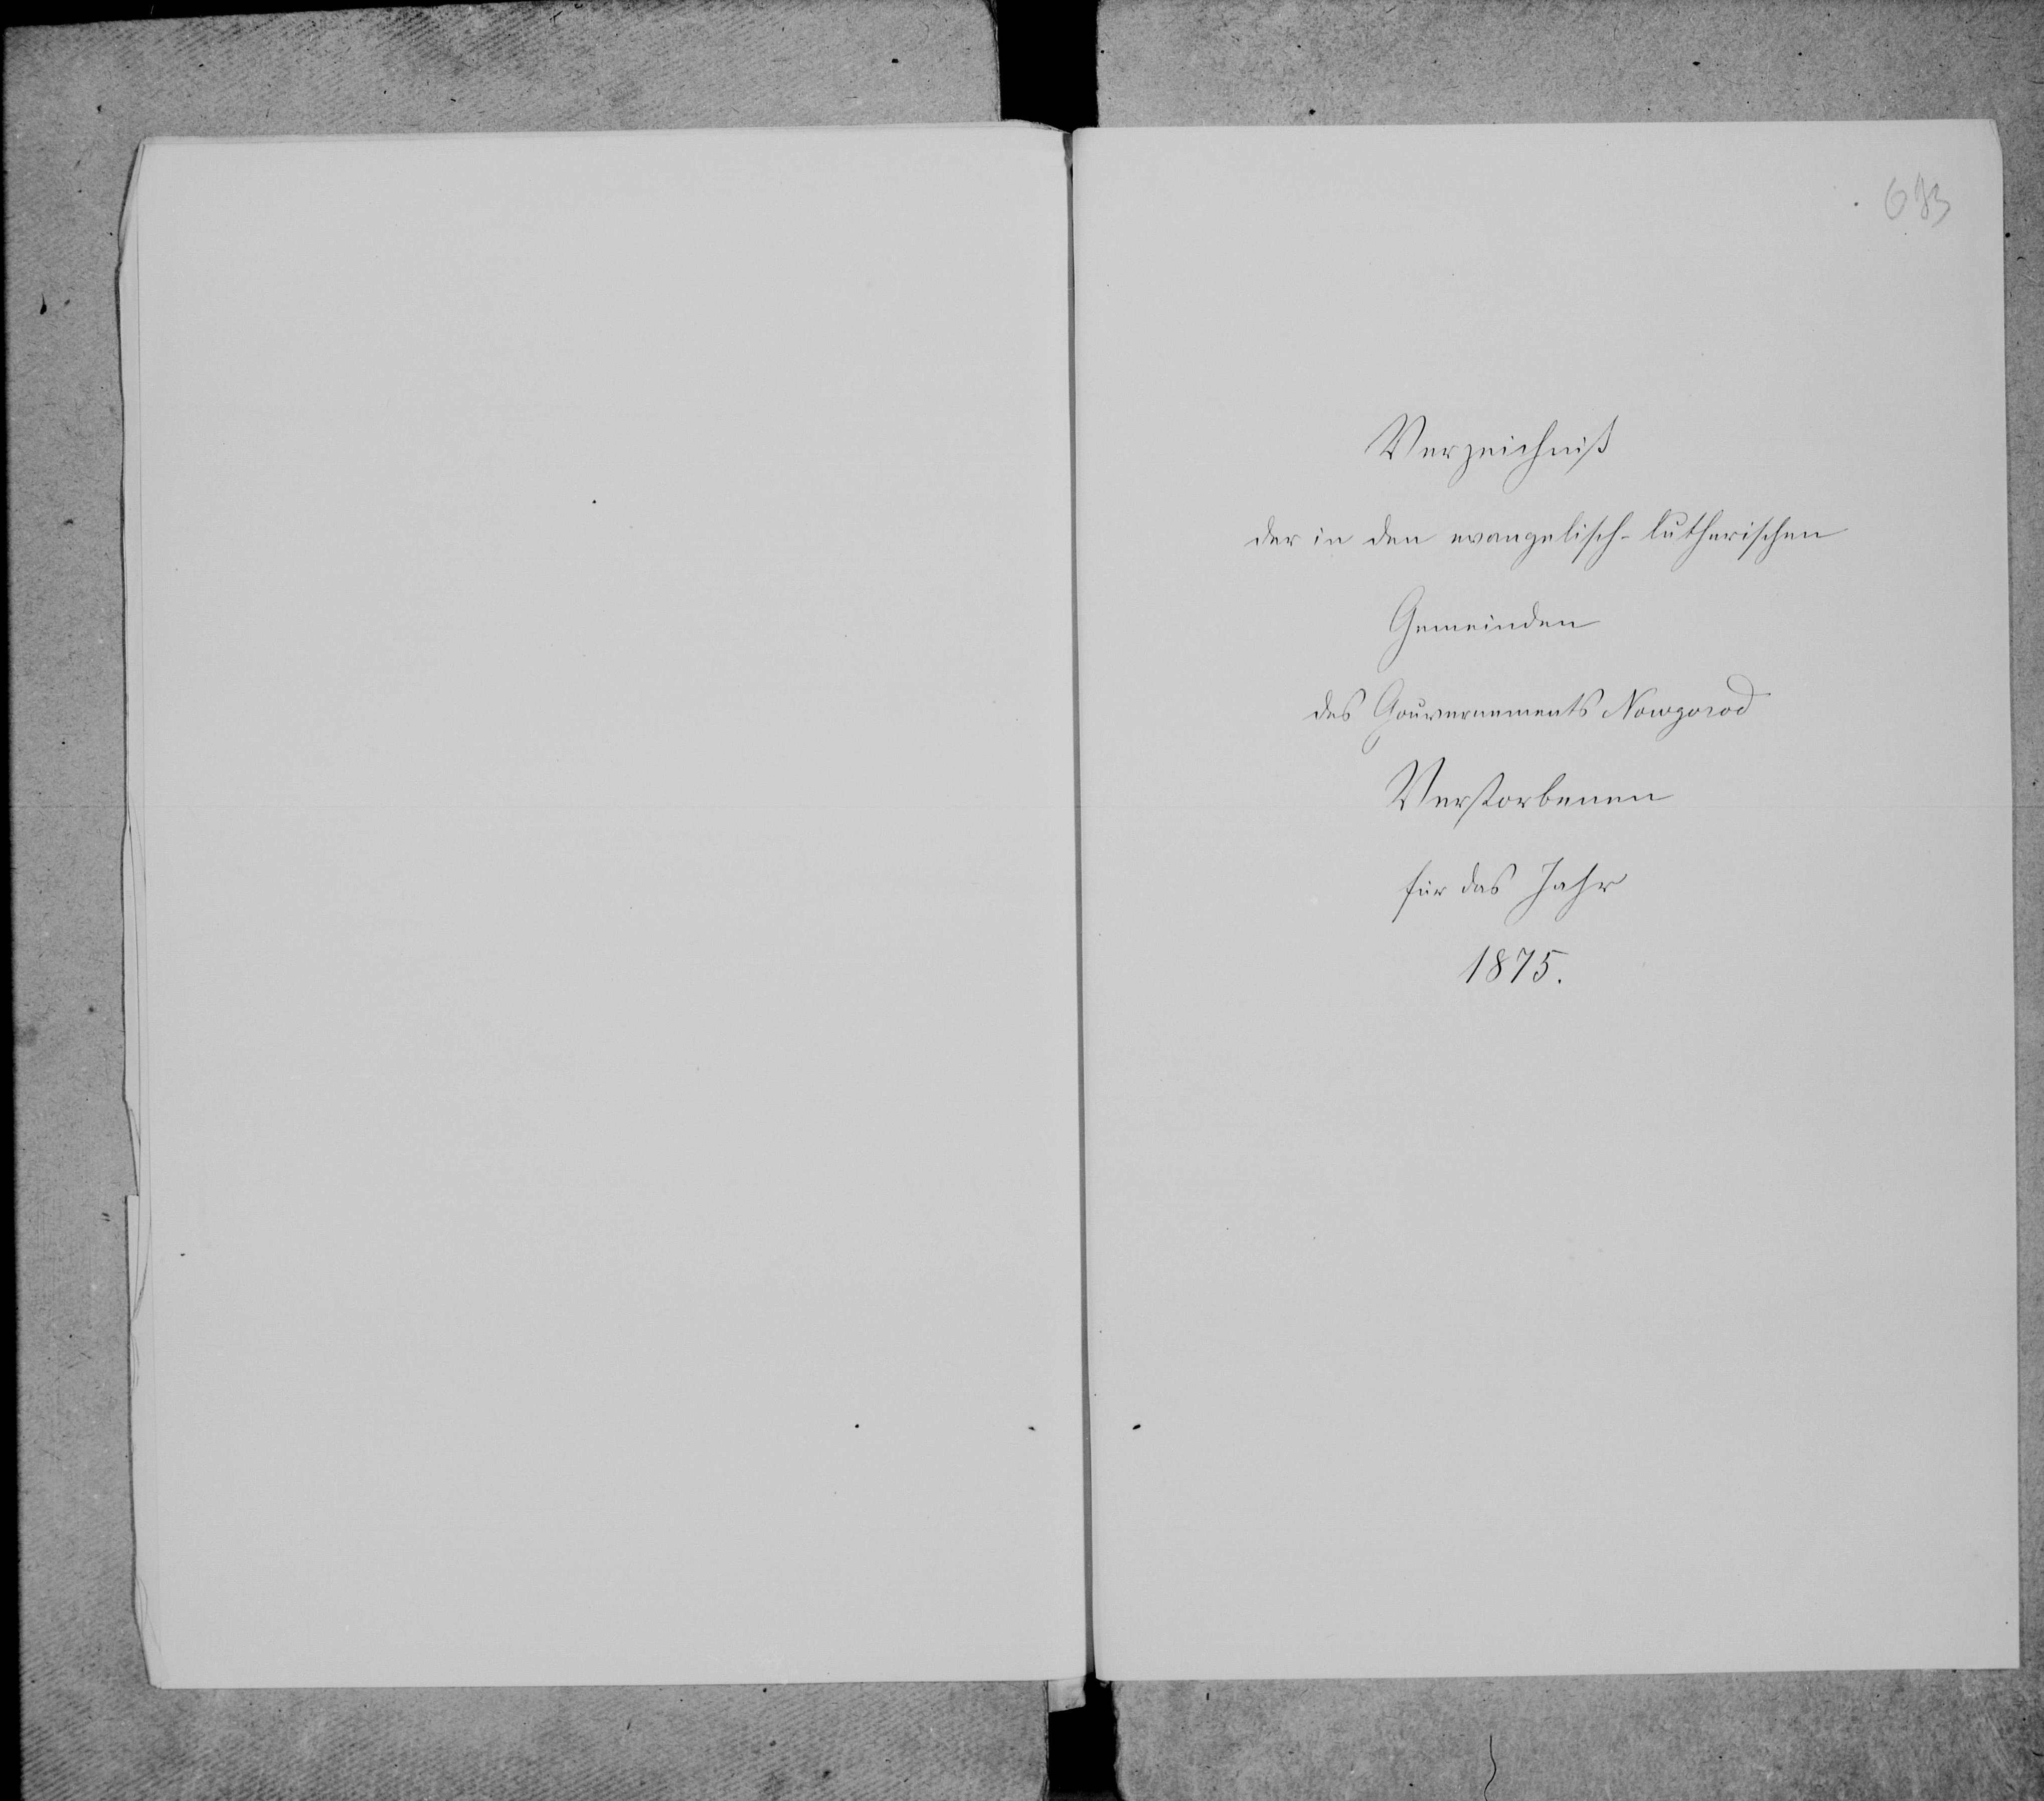 Verzeichniß
der in den evangelisch-lutherischen
Gemeinden
des Gouvernements Nowgorod
Verstorbenen
für das Jahr
1875.